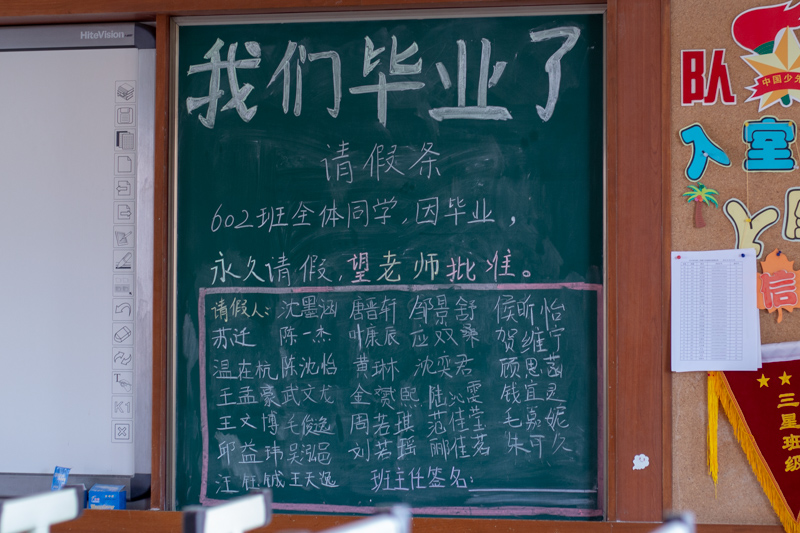 HiteVision
我们毕业了
请假条
602班全体同学,因毕业,
永久请假,望老师批准。
请假人: 沈墨涵 唐晋轩 邹景舒 侯昕怡
苏迁 陈一杰 叶康辰 应双桑 贺维宁
温在杭 陈沈怡 黄琳 沈奕君 顾思菡
王孟豪 武文龙 金紫熙 陆沁雯 钱宜灵
王文博 毛俊逸 周若琪 范佳莹 毛嘉妮
邱益玮 吴泓邑 刘若瑶 郦佳茗 朱可久
汪钰铖 王天逸 班主任签名:
K1
队
中国少先
入室
信
三星班级